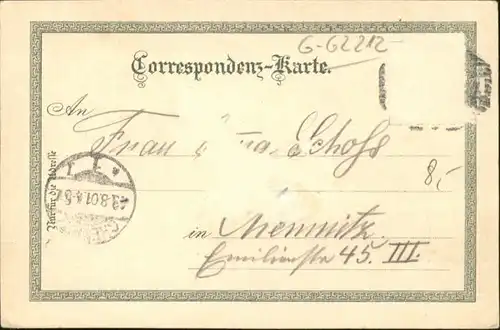 G-G2212
Correspondenz-Karte.
An
Frau Schoss
Nur für die Adresse
23.8.01.4-5
8,-
in Chemnitz
Emilienstr 45. III.